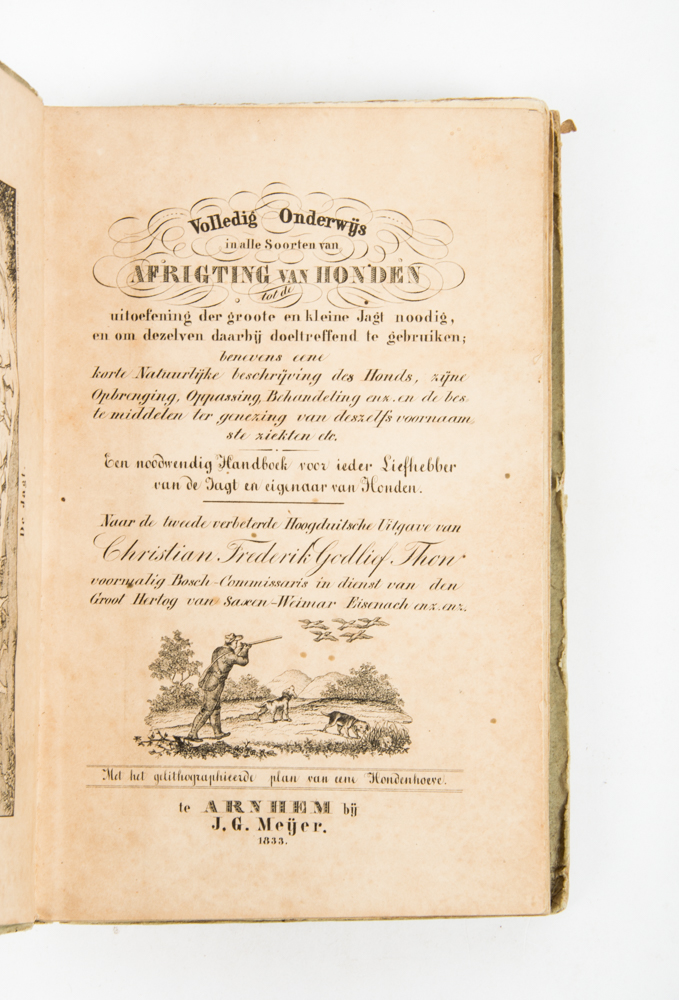 Volledig Onderwijs
in alle Soorten van
AFRIGTING VAN HONDEN
tot de
uitoefening der groote en kleine Jagt noodig,
en om dezelven daarbij doeltreffend te gebruiken;
benevens eene
korte Natuurlijke beschrijving des Honds, zijne
Opbrenging, Oppassing, Behandeling enz. en de bes-
te middelen ter genezing van deszelfs voornaam-
ste ziekten etc.
Een noodwendig Handboek voor ieder Liefhebber
van de Jagt en eigenaar van Honden.
Naar de tweede verbeterde Hoogduitsche Uitgave van
Christian Frederik Godlief Thon
voormalig Bosch-Commissaris in dienst van den
Groot Hertog van Saxen-Weimar Eisenach enz. enz.
Met het gelithographieerde plan van eene Hondenhoeve.
te ARNHEM bij
J. G. Meijer.
1833.
De Jagt.